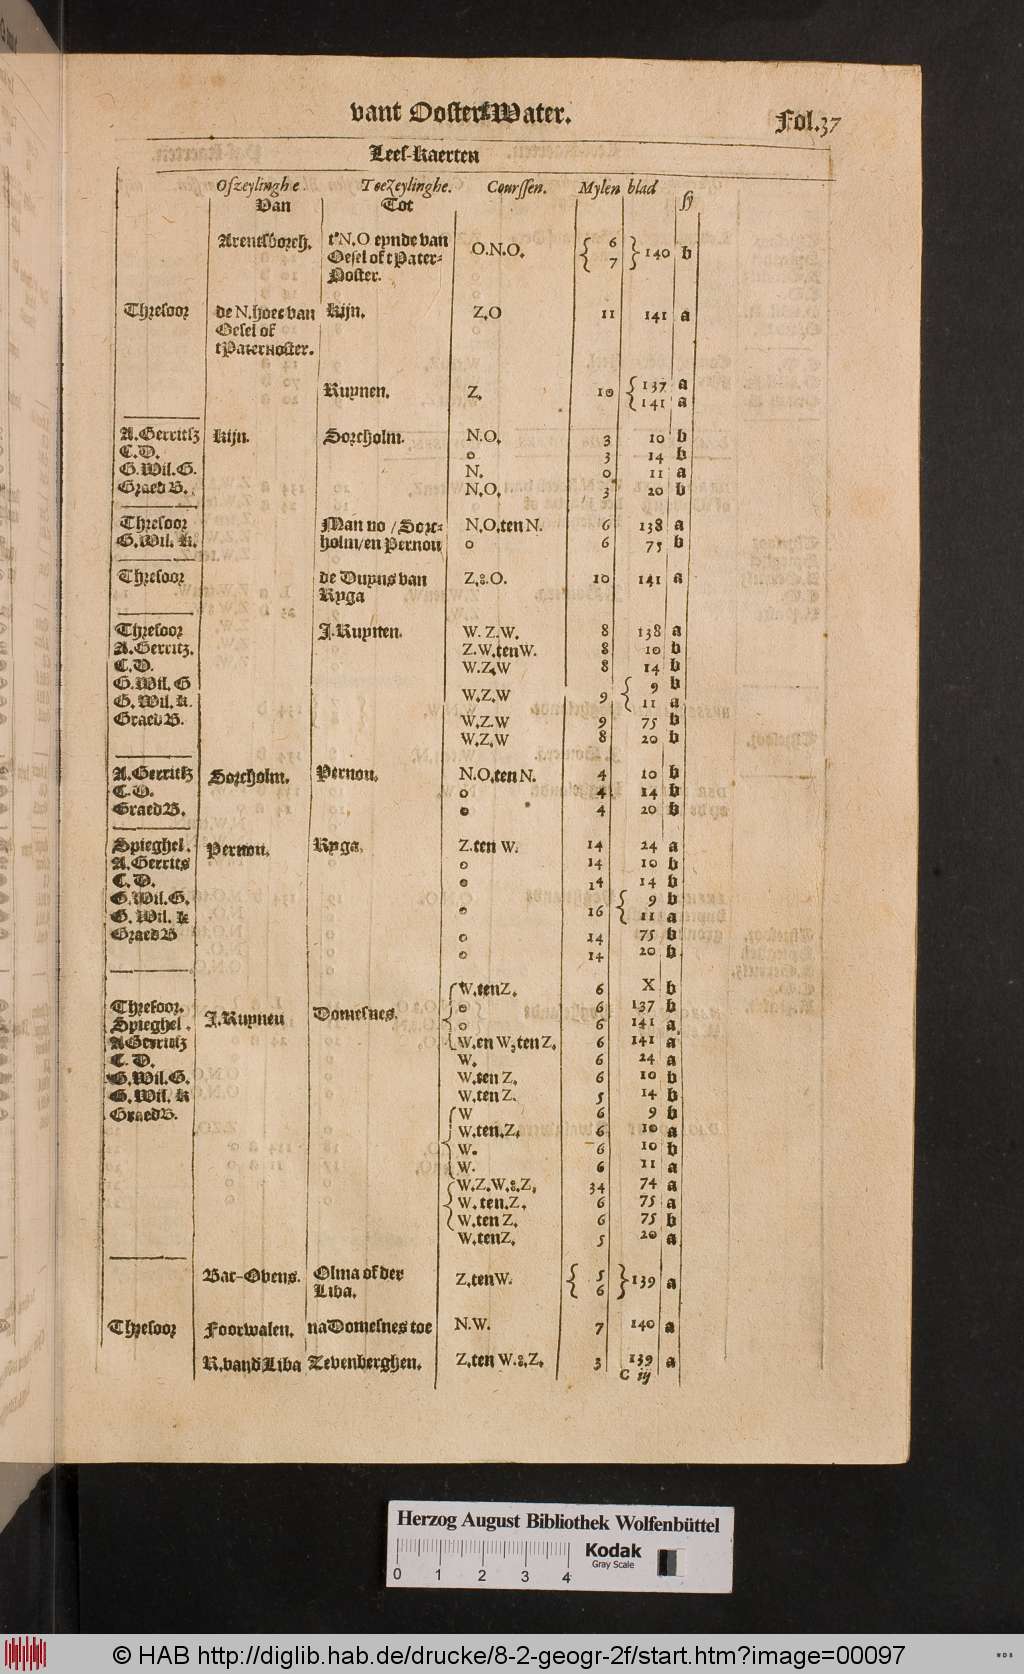 vant Ooster-Water.
Fol.37
Lees-Kaerten
Ofzeylinghe. Toezeylinghe. Courssen. Mylen blad
Van Tot sy
Arentsborch. t'N.O eynde van O.N.O. { 6 } 140 b
Oesel of t Pater- { 7 }
Noster.
Thresoor de N. hoec van Kijn. Z.O 11 141 a
Oesel of
tPaternoster.
Ruynen. Z. 10 { 137 a
{ 141 a
A. Gerritsz Kijn. Sorcholm. N.O. 3 10 b
C.D. o 3 14 b
G. Wil. G. N. 0 11 a
Graed B. N.O. 3 20 b
Thresoor Man uo / Sorc- N.O. ten N. 6 138 a
G. Wil. K. holm/en Pernou o 6 75 b
Thresoor de Duyns van Z.&.O. 10 141 a
Ryga
Thresoor J. Ruynen. W. Z.W. 8 138 a
A. Gerritz. Z.W. ten W. 8 10 b
C.D. W.Z.W 8 14 b
G. Wil. G W.Z.W 9 { 9 b
G. Wil. K. { 11 a
Graed B. W.Z.W 9 75 b
W.Z.W 8 20 b
A. Gerritsz Sorcholm. Pernou. N.O. ten N. 4 10 b
C.D. o 4 14 b
Graed B. o 4 20 b
Spieghel. Pernou. Ryga. Z. ten W. 14 24 a
A. Gerrits o 14 10 b
C. D. o 14 14 b
G. Wil. G. o 16 { 9 b
G. Wil. K { 11 a
Graed B o 14 75 b
o 14 20 b
{ W. ten Z. 6 X b
Thresoor. J. Ruynen Domesnes. o 6 137 b
Spieghel. o 6 141 a
A Gerritsz W. en W. ten Z. 6 141 a
C. D. W. 6 24 a
G. Wil. G. W. ten Z. 6 10 b
G. Wil. K W. ten Z. 5 14 b
Graed B. { W 6 9 b
W. ten. Z. 6 10 a
W. 6 10 b
W. 6 11 a
{ W.Z.W.&.Z. 34 74 a
W. ten. Z. 6 75 a
W. ten Z. 6 75 b
W. ten Z. 5 20 a
Bac-Ovens. Olma of der Z. ten W. { 5 } 139 a
Liba. { 6 }
Thresoor Foorwalen. na Domesnes toe N.W. 7 140 a
R. vand Liba Zevenberghen. Z. ten W.&.Z. 3 139 a
C iij
Herzog August Bibliothek Wolfenbüttel
Kodak
Gray Scale
0 1 2 3 4
© HAB http://diglib.hab.de/drucke/8-2-geogr-2f/start.htm?image=00097